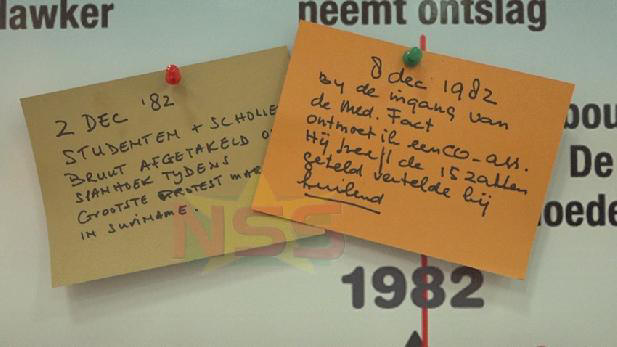 lawker
neemt ontslag
2 DEC '82
STUDENTEN + SCHOLIE
BRUUT AFGETAKELD O
SPANHOEK TYDENS
GROOTSTE PROTEST MAR
IN SURINAME.
8 dec 1982
by de ingang van
de Med. Fact
ontmoet ik een CO-ass.
Hij heeft de 15 zakken
geteld vertelde hij
huilend
bou
De
oede
NSS
1982